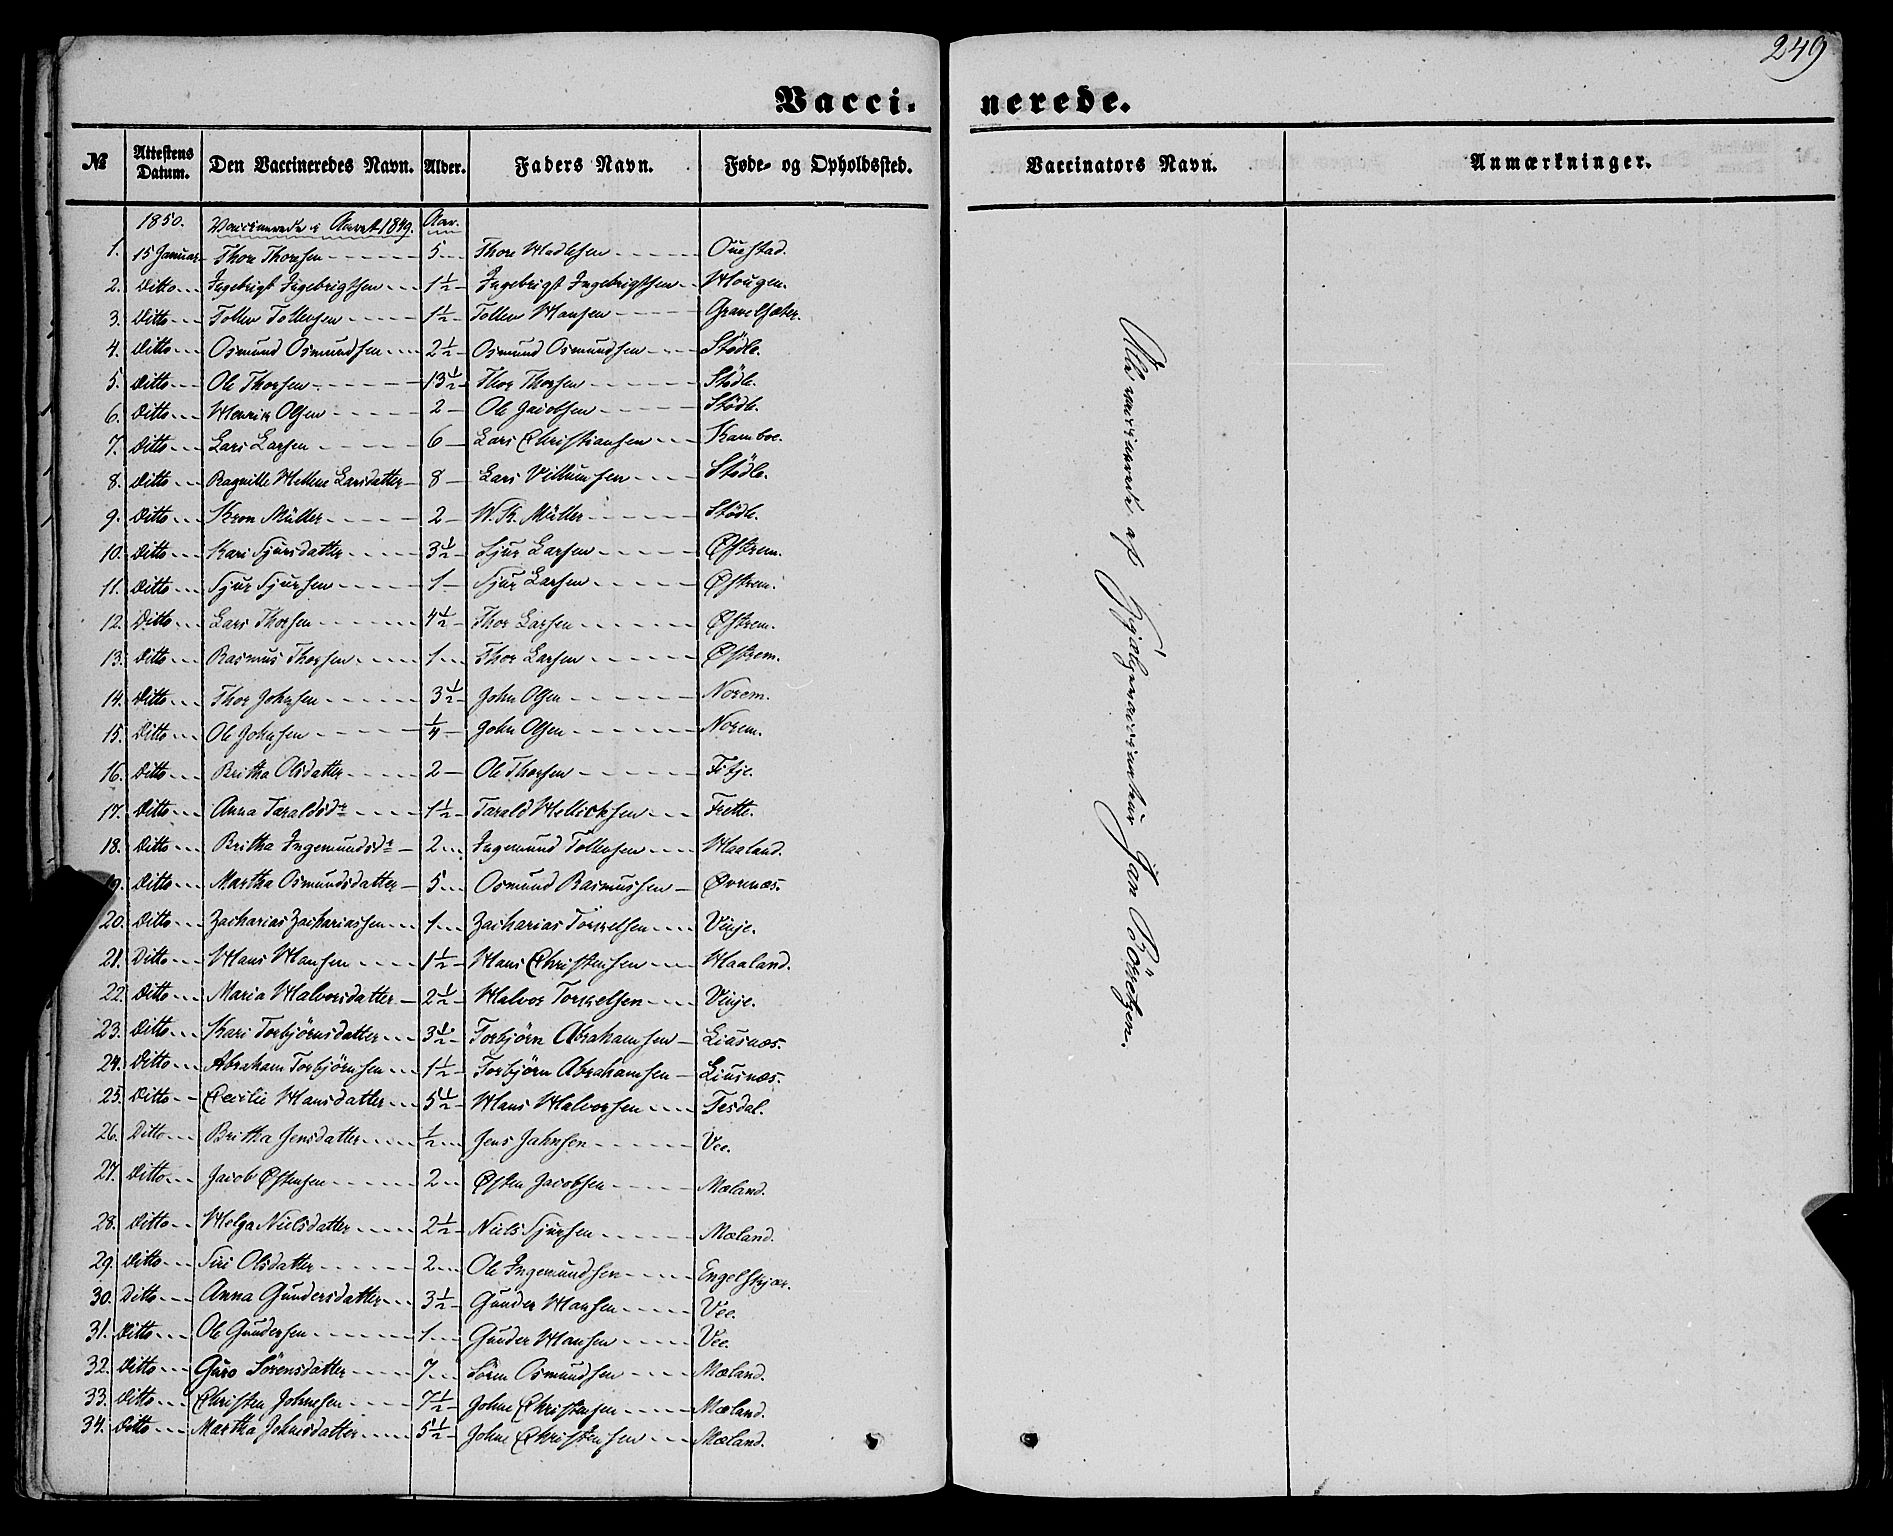 249
Vacci- nerede.
№ Attestens Datum. Den Vaccineredes Navn. Alder. Faders Navn. Føde- og Opholdssted. Vaccinators Navn. Anmærkninger.
1850. Vaccinerede i Aaret 1849. Aar.
1. 15 Januar Thore Thorsen 5 Thore Hadlesen
2. Ditto Ingebrigt Ingebrigtsen 1½ Ingebrigt Ingebrigtsen Hougen.
3. Ditto Tollev Tollevsen 1½ Tollev Hansen
4. Ditto Osmund Osmundsen 2½ Osmund Osmundsen Stödle.
5. Ditto Ole Thorsen 13½ Thor Thorsen Stödle.
6. Ditto Henrik Olsen 2 Ole Jacobsen Stödle.
7. Ditto Lars Larsen 6 Lars Christiansen Kamboe.
8. Ditto Ragnille Hellene Larsdatter 8 Lars Villumsen Stödle.
9. Ditto Müller 2 Müller Stödle.
10. Ditto Kari Sjursdatter 3½ Sjur Larsen Østrem.
11. Ditto Sjur Sjursen 1 Sjur Larsen Østrem.
12. Ditto Lars Thorsen 4½ Thor Larsen Østrem.
13. Ditto Rasmus Thorsen 1 Thor Larsen Østrem.
14. Ditto Thor Johnsen 3½ John Olsen Norem.
15. Ditto Ole Johnsen ¼ John Olsen Norem.
16. Ditto Britha Olsdatter 2 Ole Thorsen Fitje.
17. Ditto Anna Taraldsdr 1½ Tarald Frette.
18. Ditto Britha Ingemundsdr 2 Ingemund Tollevsen Haaland.
19. Ditto Martha Osmundsdatter 5 Osmund Rasmussen Øvrenæs.
20. Ditto Zacharias Zachariassen 1 Zacharias Törkelsen Vinje.
21. Ditto Hans Hansen 1½ Hans Christensen Haaland.
22. Ditto Maria Halvorsdatter 2½ Halvor Torkelsen Vinje.
23. Ditto Kari Torbjörnsdatter 3½ Torbjörn Abrahamsen Liusnæs.
24. Ditto Abraham Torbjörnsen 1½ Torbjörn Abrahamsen Liusnæs.
25. Ditto Cecilie Hansdatter 5½ Hans Halvorsen Tesdal.
26. Ditto Britha Jensdatter ½ Jens Johnsen Vee.
27. Ditto Jacob Østensen 2 Østen Jacobsen Mæland.
28. Ditto Helga Nielsdatter 2½ Niels Sjursen Mæland.
29. Ditto Siri Olsdatter 2 Ole Ingemundsen Engelskjær.
30. Ditto Anna Gundersdatter 3½ Gunder Hansen Vee.
31. Ditto Ole Gundersen 1 Gunder Hansen Vee.
32. Ditto Guro Sörensdatter 7 Sören Osmundsen Mæland.
33. Ditto Christen Johnesen 7½ Johne Christensen Mæland.
34. Ditto Martha Johnesdatter 5½ Johne Christensen Mæland.
Alle vaccinerede af Hjælpevaccinateur Jan